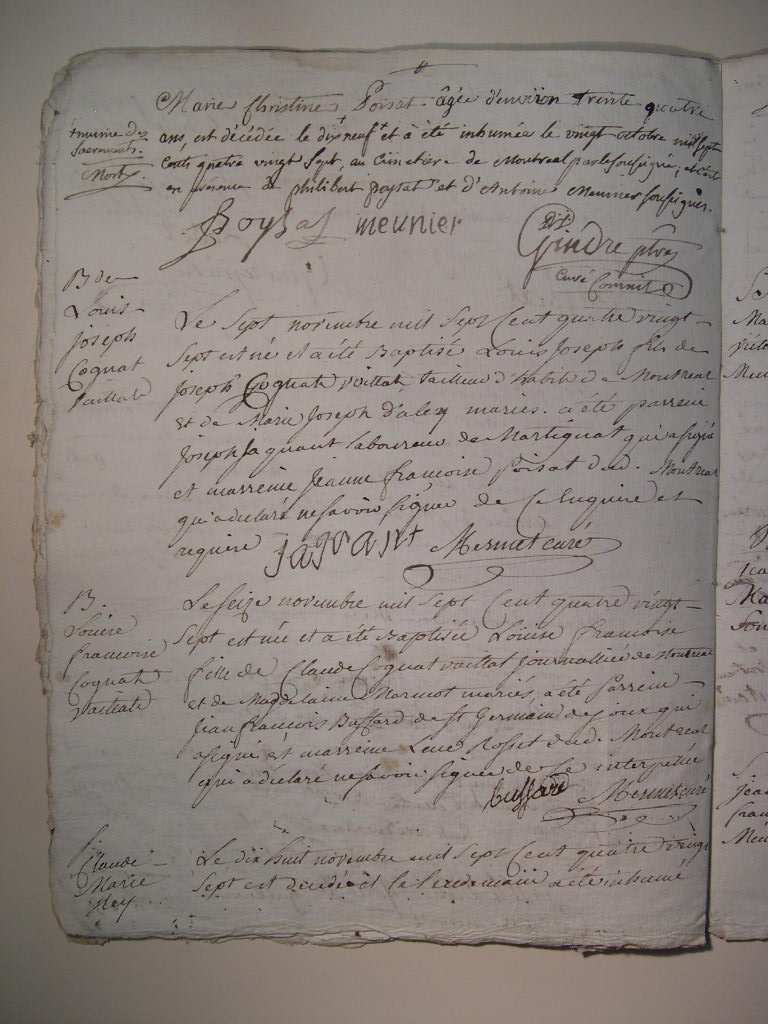 Marie Christine Poisat âgée d'environ trente quatre
ans, est décédée le dix neuf + et a été inhumée le vingt octobre mil sept
cents quatre vingt sept, au Cimetiere de Montreal par le soussigné, et ce
en presence de philibert poysat et d'Antoine Meunier soussignés.
+ munie des
Sacrements.
Mort
Poysat meunier
Gindre ptre
Curé Commis
B de
Louis
joseph
Cognat
Vaillat
Le sept novembre mil sept Cent quatre vingt
sept est né et a été Baptisé Louis Joseph fils de
joseph Cognat vaillat tailleur d'habit de Montreal
et de Marie Joseph d'alex mariés. a été parrein
joseph jaquant laboureur de Martignat qui a signé
et marreine jeanne francoise Poisat dud. Montreal
qui a declaré ne savoir signer de Ce Enquire et
requise
jaquant Mermet curé
B.
Louise
francoise
Cognat
Vaillat
Le seize novembre mil sept Cent quatre vingt
sept est née et a été Baptisée Louise francoise
fille de Claude Cognat vaillat journallié de Montreal
et de Magdelaine Marmot mariés, a été Parrein
jean francois Buffard de st Germain de joux qui
a signé et marreine Rosset dud. Montreal
qui a declaré ne savoir signer de Ce interpellée
buffard Mermet curé
Claude
Marie
Ney
Le dix huit novembre mil sept Cent quatre vingt
sept est decedé et le lendemain a été inhumé